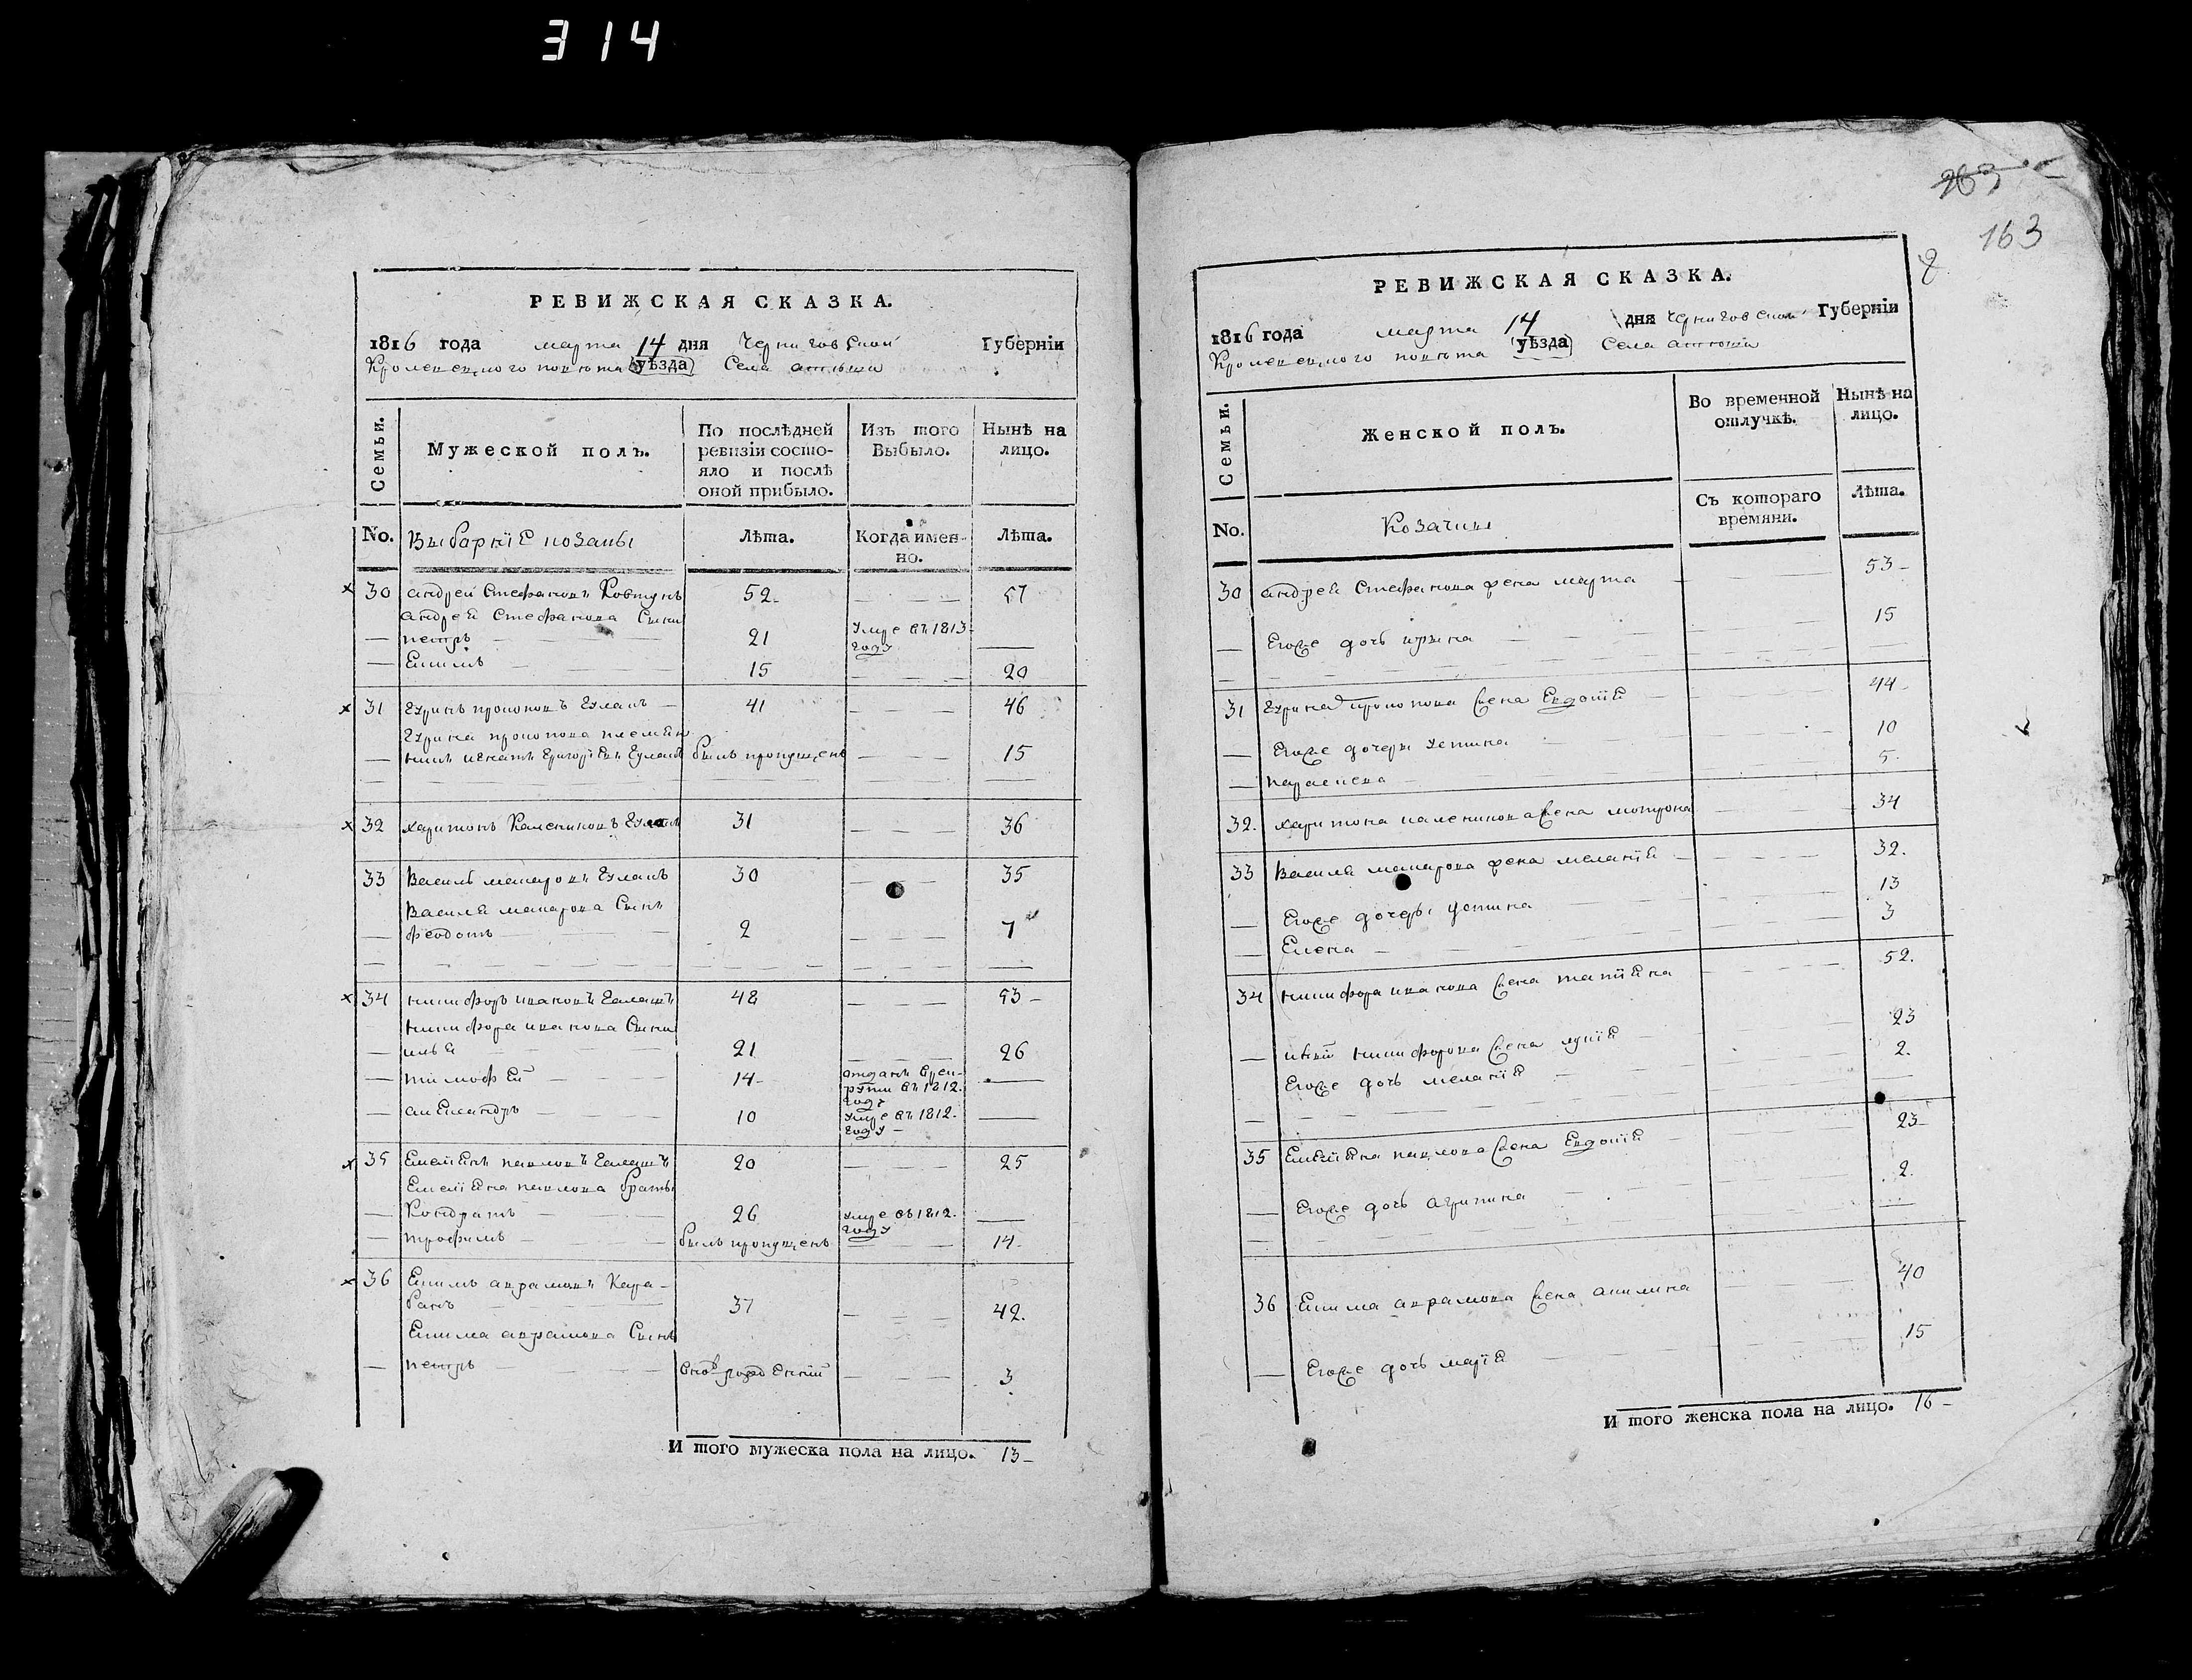 314
263
163
РЕВИЖСКАЯ СКАЗКА.
1816 года марта 14 дня Черниговской Губерніи
Кролевецкого повѣта уѣзда Села
Семьи.
Мужеской полъ.
По послѣдней ревизіи состо-
яло и послѣ
оной прибыло.
Изъ того
Выбыло.
Нынѣ на
лицо.
No. Выбарніе козаки Лѣта. Когда имен-
но. Лѣта.
30 андрей Стефановъ Ковтунъ 52 57
андрея Стефанова Сыни
— петръ 21 Умре въ 1813
году
— Екимъ 15 20
31 Гуринъ прокоповъ Гулакъ 41 46
Гурина прокопова племен
— никъ игнатъ григорієвъ Гулакъ былъ пропущенъ 15
32 харитонъ Калениковъ 31 36
33 Василь макаровъ Гулакъ 30 35
Василя макарова Сынъ
— феодотъ 2 7
34 никифоръ ивановъ 48 53
никифора иванова Сыни
— илья 21 26
— тимофей 14 отданъ в рек-
руты въ 1812
году
— александръ 10 умре въ 1812
году
35 Емелянъ павловъ 20 25
Емеляна павлова братья
— Кондратъ 26 умре въ 1812
году
— трофимъ былъ пропущенъ 14
36 Екимъ аврамовъ Кара-
банъ 37 42
Екима аврамова Сынъ
— петръ вновъ рожденній 3
И того мужеска пола на лицо. 13
РЕВИЖСКАЯ СКАЗКА.
1816 года марта 14 дня черниговской Губерніи
Кролевецкого повѣта уѣзда Села
Семьи.
Женской полъ.
Во временной
отлучкѣ.
Нынѣ на
лицо.
Съ котораго
времяни.
Лѣта.
No. Козачки
30 андрея Стефанова жена марта 53
— Егоже дочь ирина 15
31 Гурина прокопова жена Евдокія 44
— Егоже дочери устина 10
— параскева 5
32. харитона каленикова жена мотрона 34
33 Василя макарова жена меланія 32.
— Егоже дочери устина 13
— Елена 3
34 никифора иванова жена татіяна 52.
— никифорова жена лукія 23
Егоже дочь меланія 2.
35 Емеляна павлова жена Евдокія 23
— Егоже дочь агрипина 2.
36 Екима аврамова жена акилина 40
— Егоже дочь марія 15
И того женска пола на лицо. 16